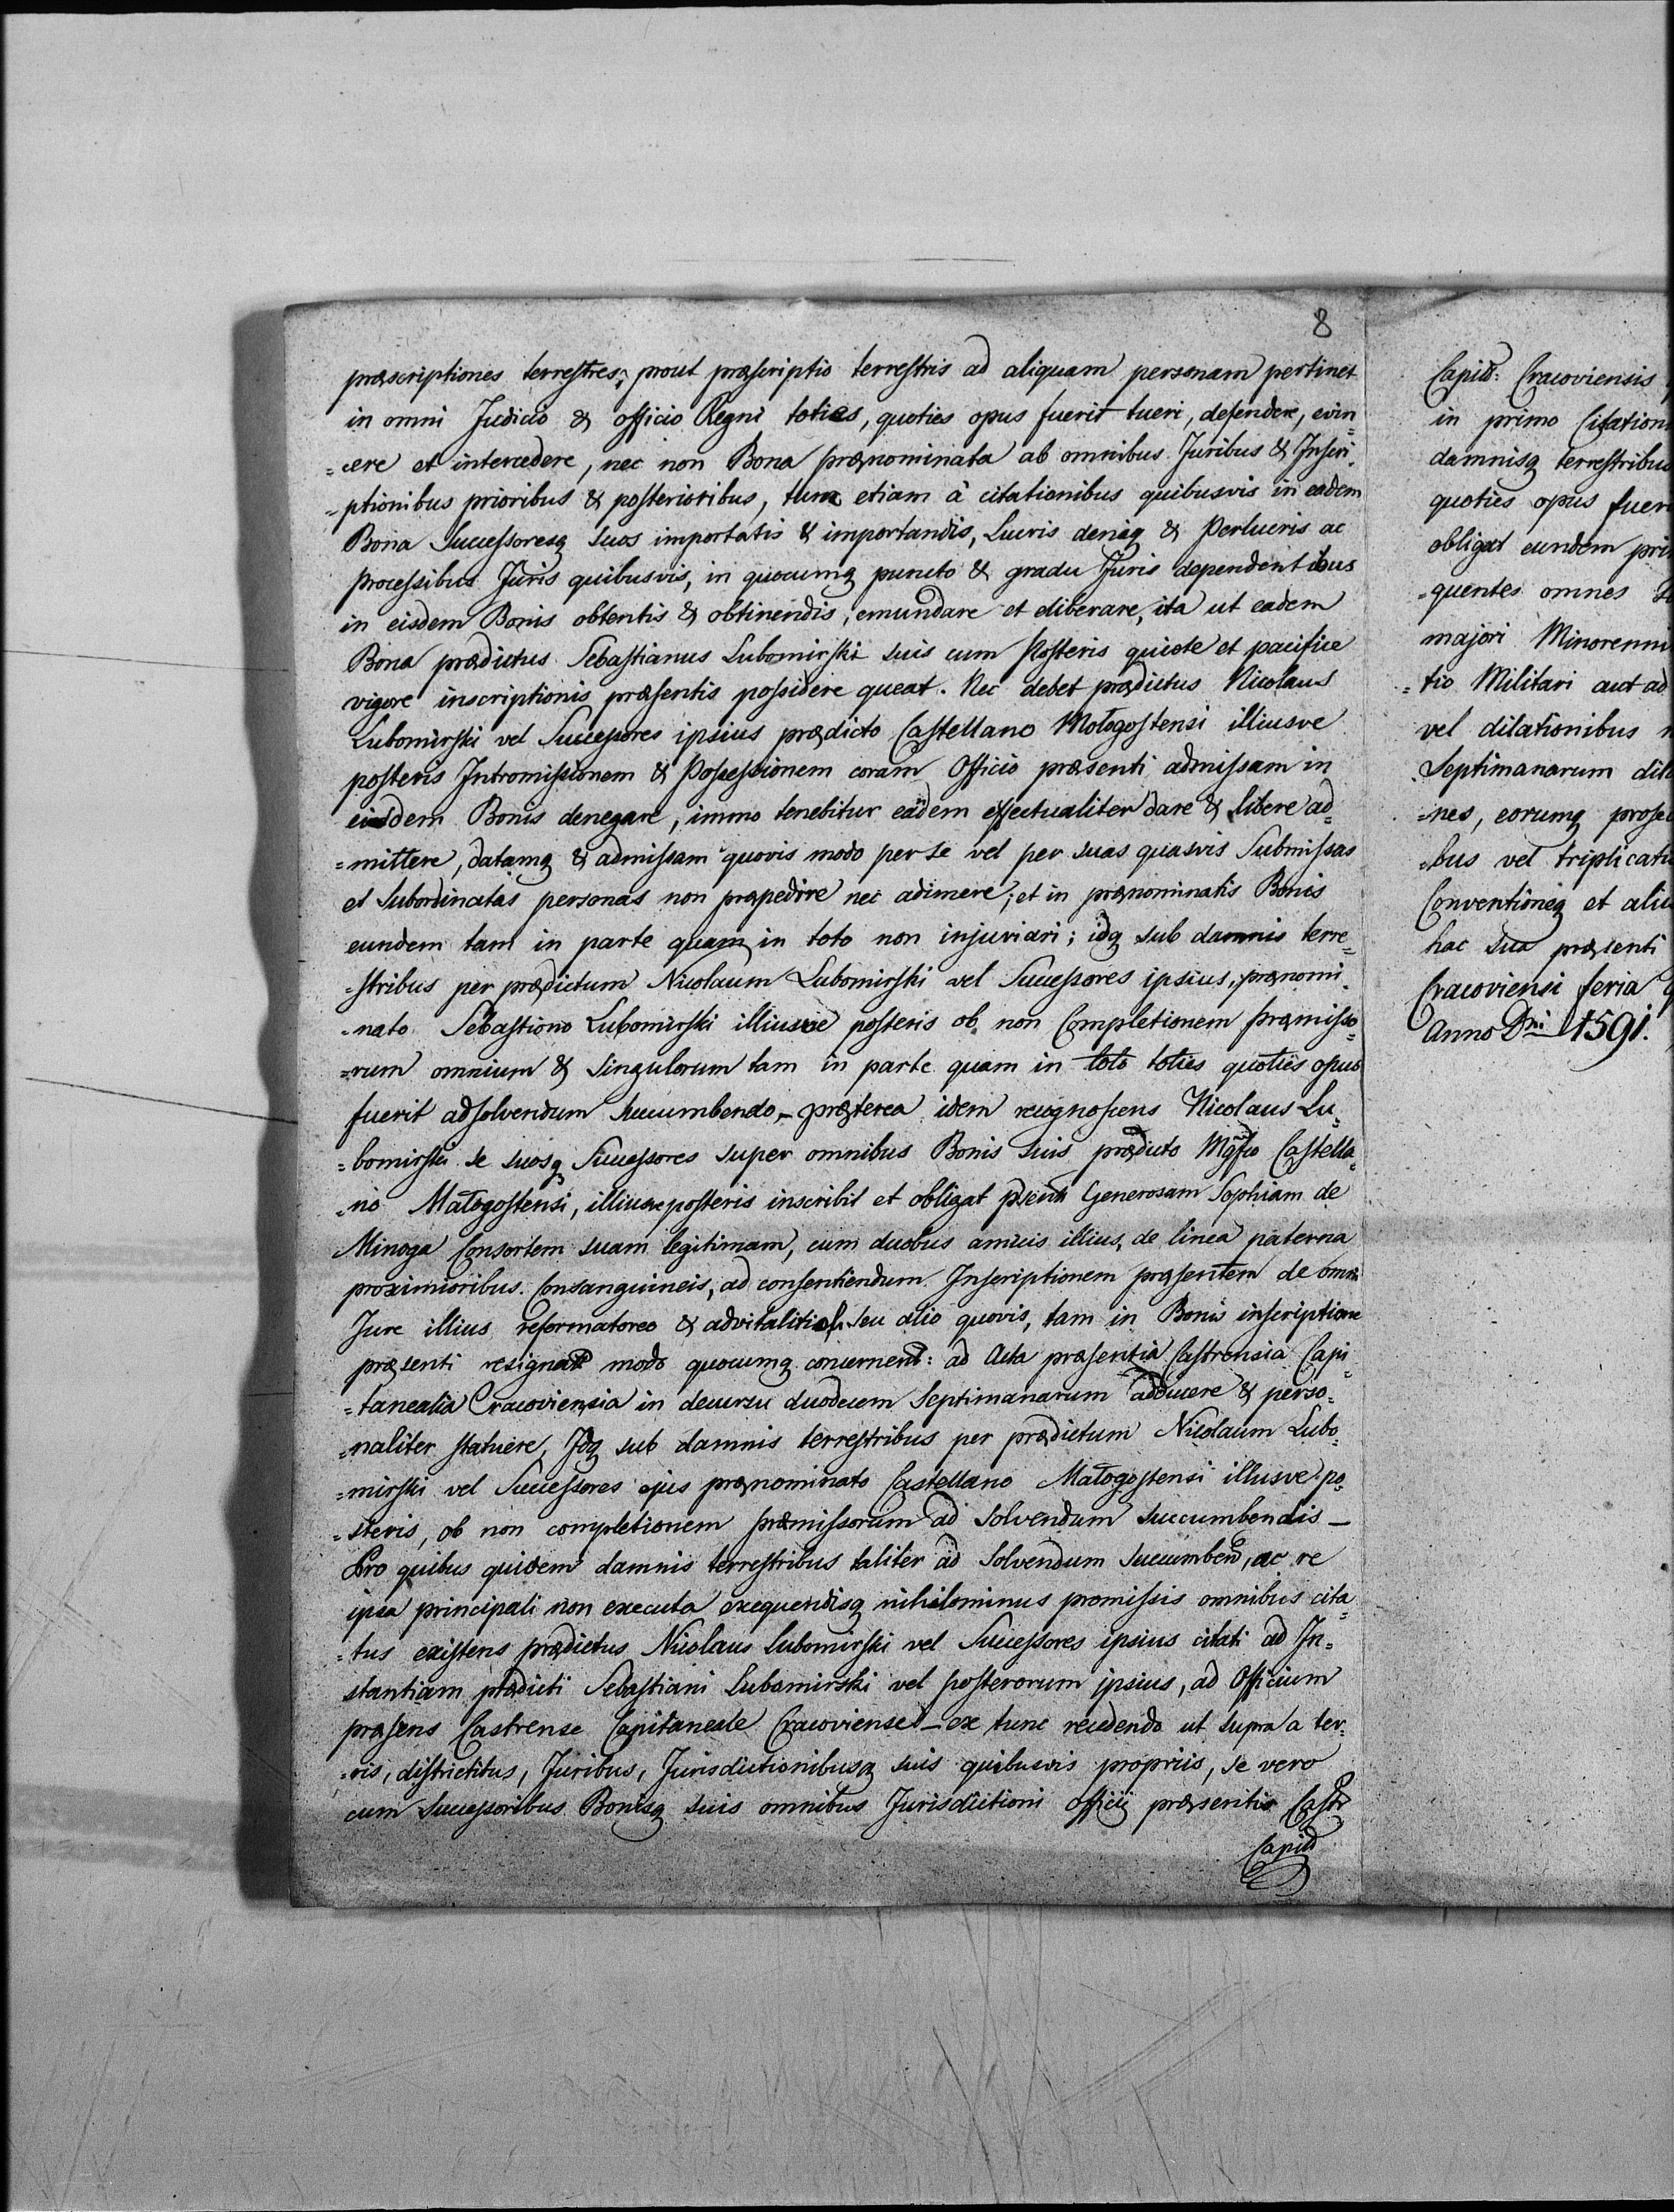 8
præscriptiones terrestres, prout præscriptio terrestris ad aliquam personam pertinet
in omni Judicio & officio Regni toties, quoties opus fuerit tueri, defendere, evin=
=cere et intercedere, nec non Bona prænominata ab omnibus Juribus & Inscri=
=ptionibus prioribus & posterioribus, tum etiam à citationibus quibusvis in eadem
Bona Successoresq suos importatis & importandis, Lucris deniq & Perlucris ac
processibus Juris quibusvis, in quocumq puncto & gradu Juris dependentibus
in eisdem Bonis obtentis & obtinendis, emundare et eliberare, ita ut eadem
Bona prædictus Sebastianus Lubomirski suis cum Posteris quiete et pacifice
vigore inscriptionis præsentis possidere queat. Nec debet prædictus Nicolaus
Lubomirski vel Successores ipsius prædicto Castellano Małogostensi illiusve
posteris Intromissionem & Possessionem coram Officio præsenti admissam in
eisdem Bonis denegare, immo tenebitur eadem effectualiter dare & libere ad=
=mittere, datamq & admissam quovis modo per se vel per suas quasvis Submissas
et Subordinatas personas non præpedire nec adimere; et in prænominatis Bonis
eundem tam in parte quam in toto non injuriari; idq sub damnis terre=
=stribus per prædictum Nicolaum Lubomirski vel Successores ipsius, prænomi=
=nato Sebastiano Lubomirski illiusve posteris ob non Completionem præmisso=
=rum omnium & Singulorum tam in parte quam in toto toties quoties opus
fuerit ad solvendum succumbendo – præterea idem recognoscens Nicolaus Lu=
=bomirski se suosq Successores super omnibus Bonis suis prædicto Mgfco Castella=
=no Małogostensi, illiusve posteris inscribit et obligat Generosam Sophiam de
Minoga Consortem suam legitimam, cum duobus amicis illius, de linea paterna
proximioribus Consanguineis, ad consentiendum Inscriptionem præsentem de omni
Jure illius reformatoreo & advitalitio seu alio quovis, tam in Bonis inscriptione
præsenti resignat modo quocumq concernen: ad Acta præsentia Castrensia Capi=
=tanealia Cracoviensia in decursu duodecem Septimanarum adducere & perso=
=naliter statuere, Idq sub damnis terrestribus per prædictum Nicolaum Lubo=
=mirski vel Successores ejus prænominato Castellano Małogostensi illusve po=
=steris, ob non completionem præmissorum ad Solvendum succumbendis –
Pro quibus quidem damnis terrestribus taliter ad Solvendum succumben, ac re
ipsa principali non executa exequendisq nihilominus promissis omnibus cita=
=tus existens prædictus Nicolaus Lubomirski vel Successores ipsius citati ad In=
stantiam prædicti Sebastiani Lubomirski vel posterorum ipsius, ad Officium
præsens Castrense Capitaneale Cracoviense – ex tunc recedendo ut supra a ter=
=ris, districtibus, Juribus, Jurisdictionibusq suis quibusvis propriis, se vero
cum Successoribus Bonisq suis omnibus Jurisdictioni officij præsentis Castr
Capit
Capit: Cracoviensis
in primo Citation
damnisq terrestribus
quoties opus fuer
obligat eundem pri
=quentes omnes
majori Minorenni
=tio Militari aut ad
vel dilationibus
Septimanarum dil
=nes, eorumq prose
=bus vel triplicati
Conventioneq et ali
hac sua præsenti
Cracoviensi feria
Anno Dni 1591.